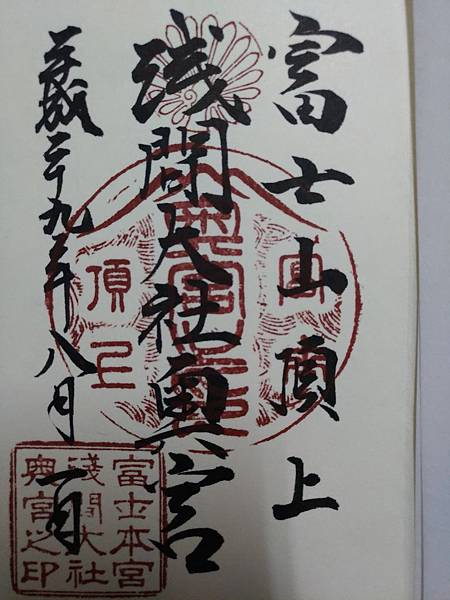 富士山頂上
浅間大社奥宮
平成二十九年八月一日
頂上
富士本宮
浅間大社
奥宮之印